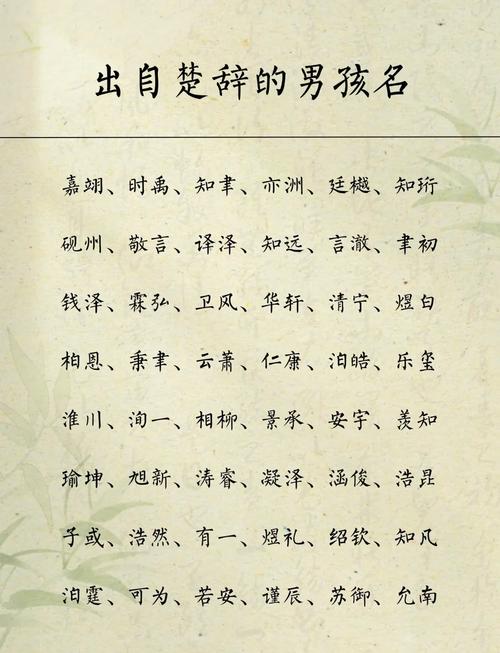 出自楚辞的男孩名
嘉翊、时禹、知聿、亦洲、廷樾、知珩
砚州、敬言、译泽、知远、言澈、聿初
钱泽、霖弘、卫风、华轩、清宁、煜白
柏恩、秉聿、云萧、仁康、泊皓、乐玺
淮川、洵一、相柳、景承、安宇、羡知
瑜坤、旭新、涛睿、凝泽、涵俊、浩昆
子或、浩然、有一、煜礼、绍钦、知凡
泊霆、可为、若安、谨辰、苏御、允南